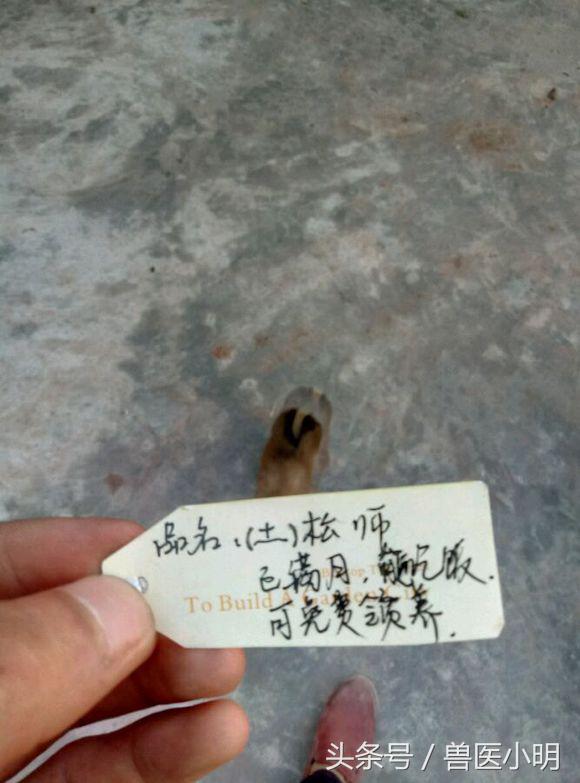 品名:(土)松师
已满月,能吃饭.
To Build A Garden
可免费领养.
头条号 / 兽医小明